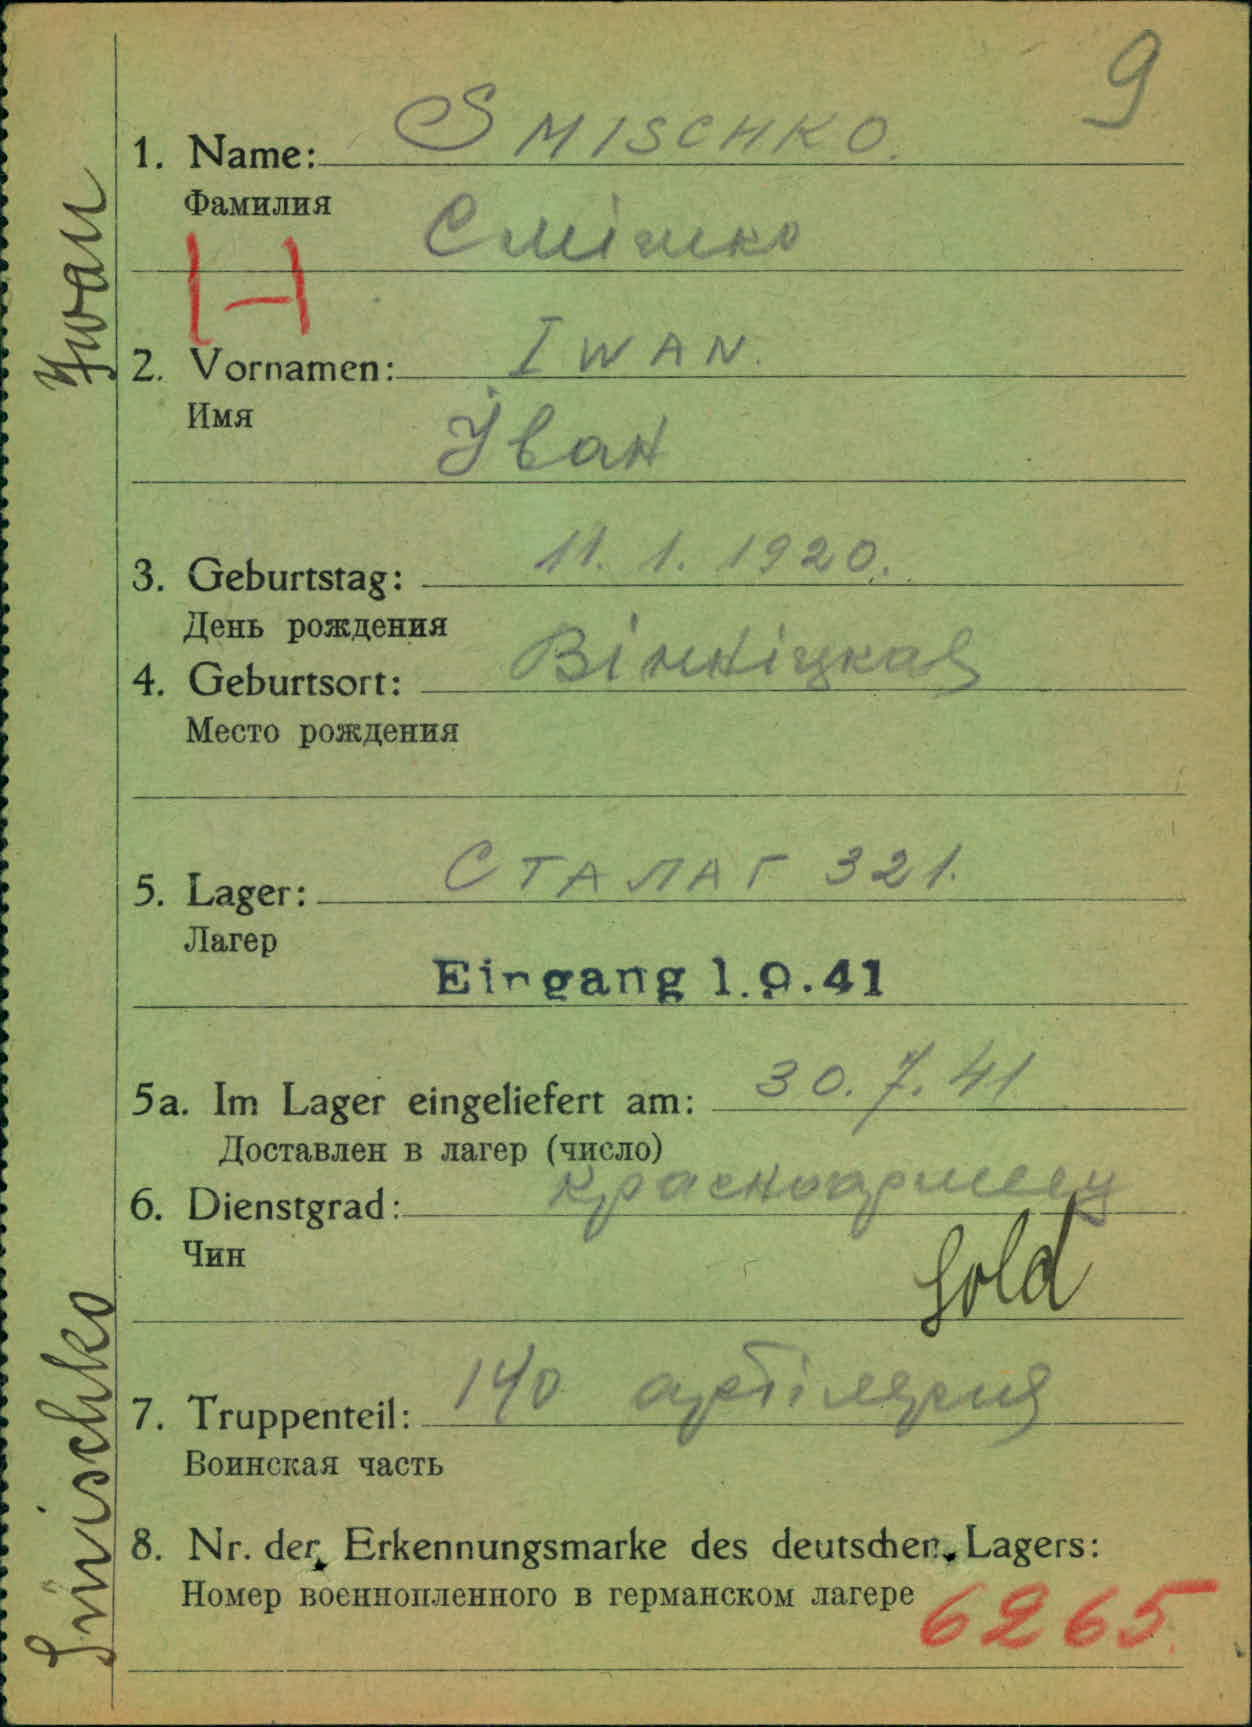 9
1. Name: SMISCHKO.
Фамилия
Смішко
H
2. Vornamen: IWAN.
Имя
Іван
3. Geburtstag: 11. 1. 1920.
День рождения
4. Geburtsort: Вінніцкая
Место рождения
5. Lager: СТАЛАГ 321.
Лагер
Eingang 1.9.41
5a. Im Lager eingeliefert am: 30. 7. 41
Доставлен в лагер (число)
6. Dienstgrad: красноармеец
Чин
Sold
7. Truppenteil: 140 артілерия
Воинская часть
8. Nr. der Erkennungsmarke des deutschen Lagers:
Номер военнопленного в германском лагере 6265.
Smischko Iwan